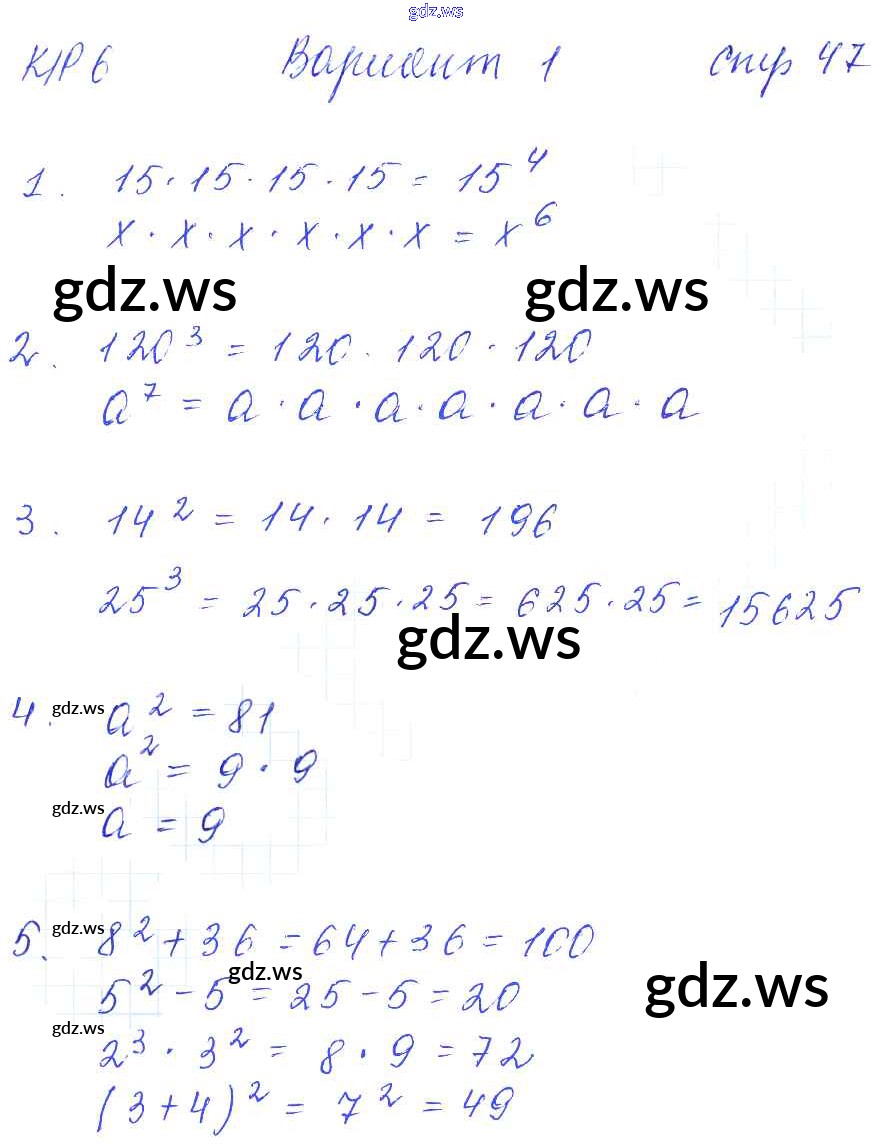 gdz.ws
К/Р 6 Вариант 1 стр 47
1. 15·15·15·15 = 15⁴
x·x·x·x·x·x = x⁶
gdz.ws gdz.ws
2. 120³ = 120·120·120
a⁷ = a·a·a·a·a·a·a
3. 14² = 14·14 = 196
25³ = 25·25·25 = 625·25 = 15625
gdz.ws
4. gdz.ws a² = 81
a² = 9·9
gdz.ws a = 9
5. gdz.ws 8² + 36 = 64 + 36 = 100
gdz.ws
5² - 5 = 25 - 5 = 20 gdz.ws
gdz.ws
2³ · 3² = 8 · 9 = 72
(3+4)² = 7² = 49